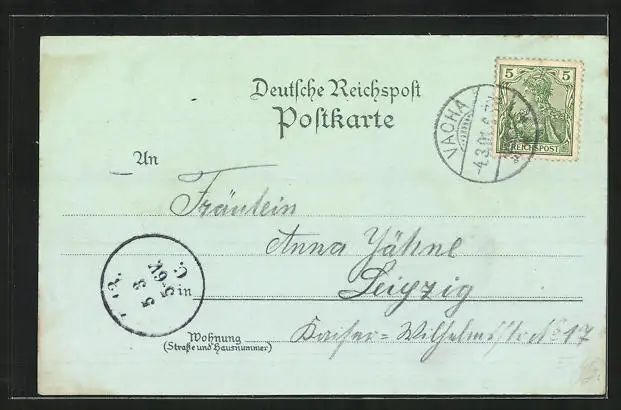 Deutsche Reichspost
Postkarte
5 5
REICHSPOST
VACHA
4.3.01
An
Fräulein
Anna Jähne
in Leipzig
5 3
5-6V.
C.
Wohnung
(Straße und Hausnummer)
Kaiser-Wilhelmstr. No 17